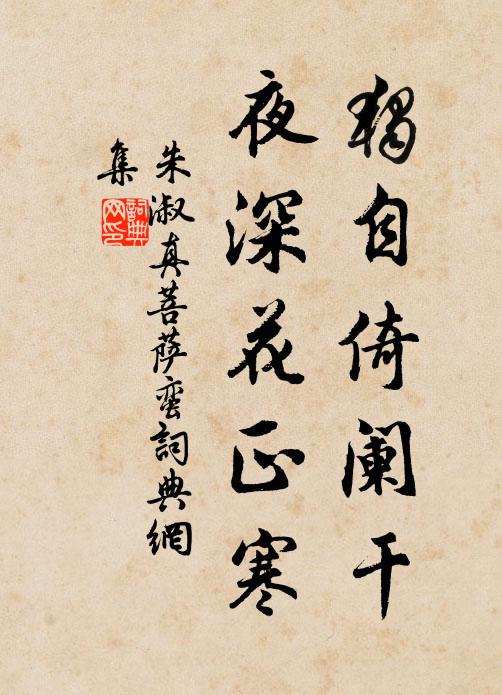 獨自倚阑干
夜深花正寒
朱淑真菩萨蛮詞典網
集
詞典網印